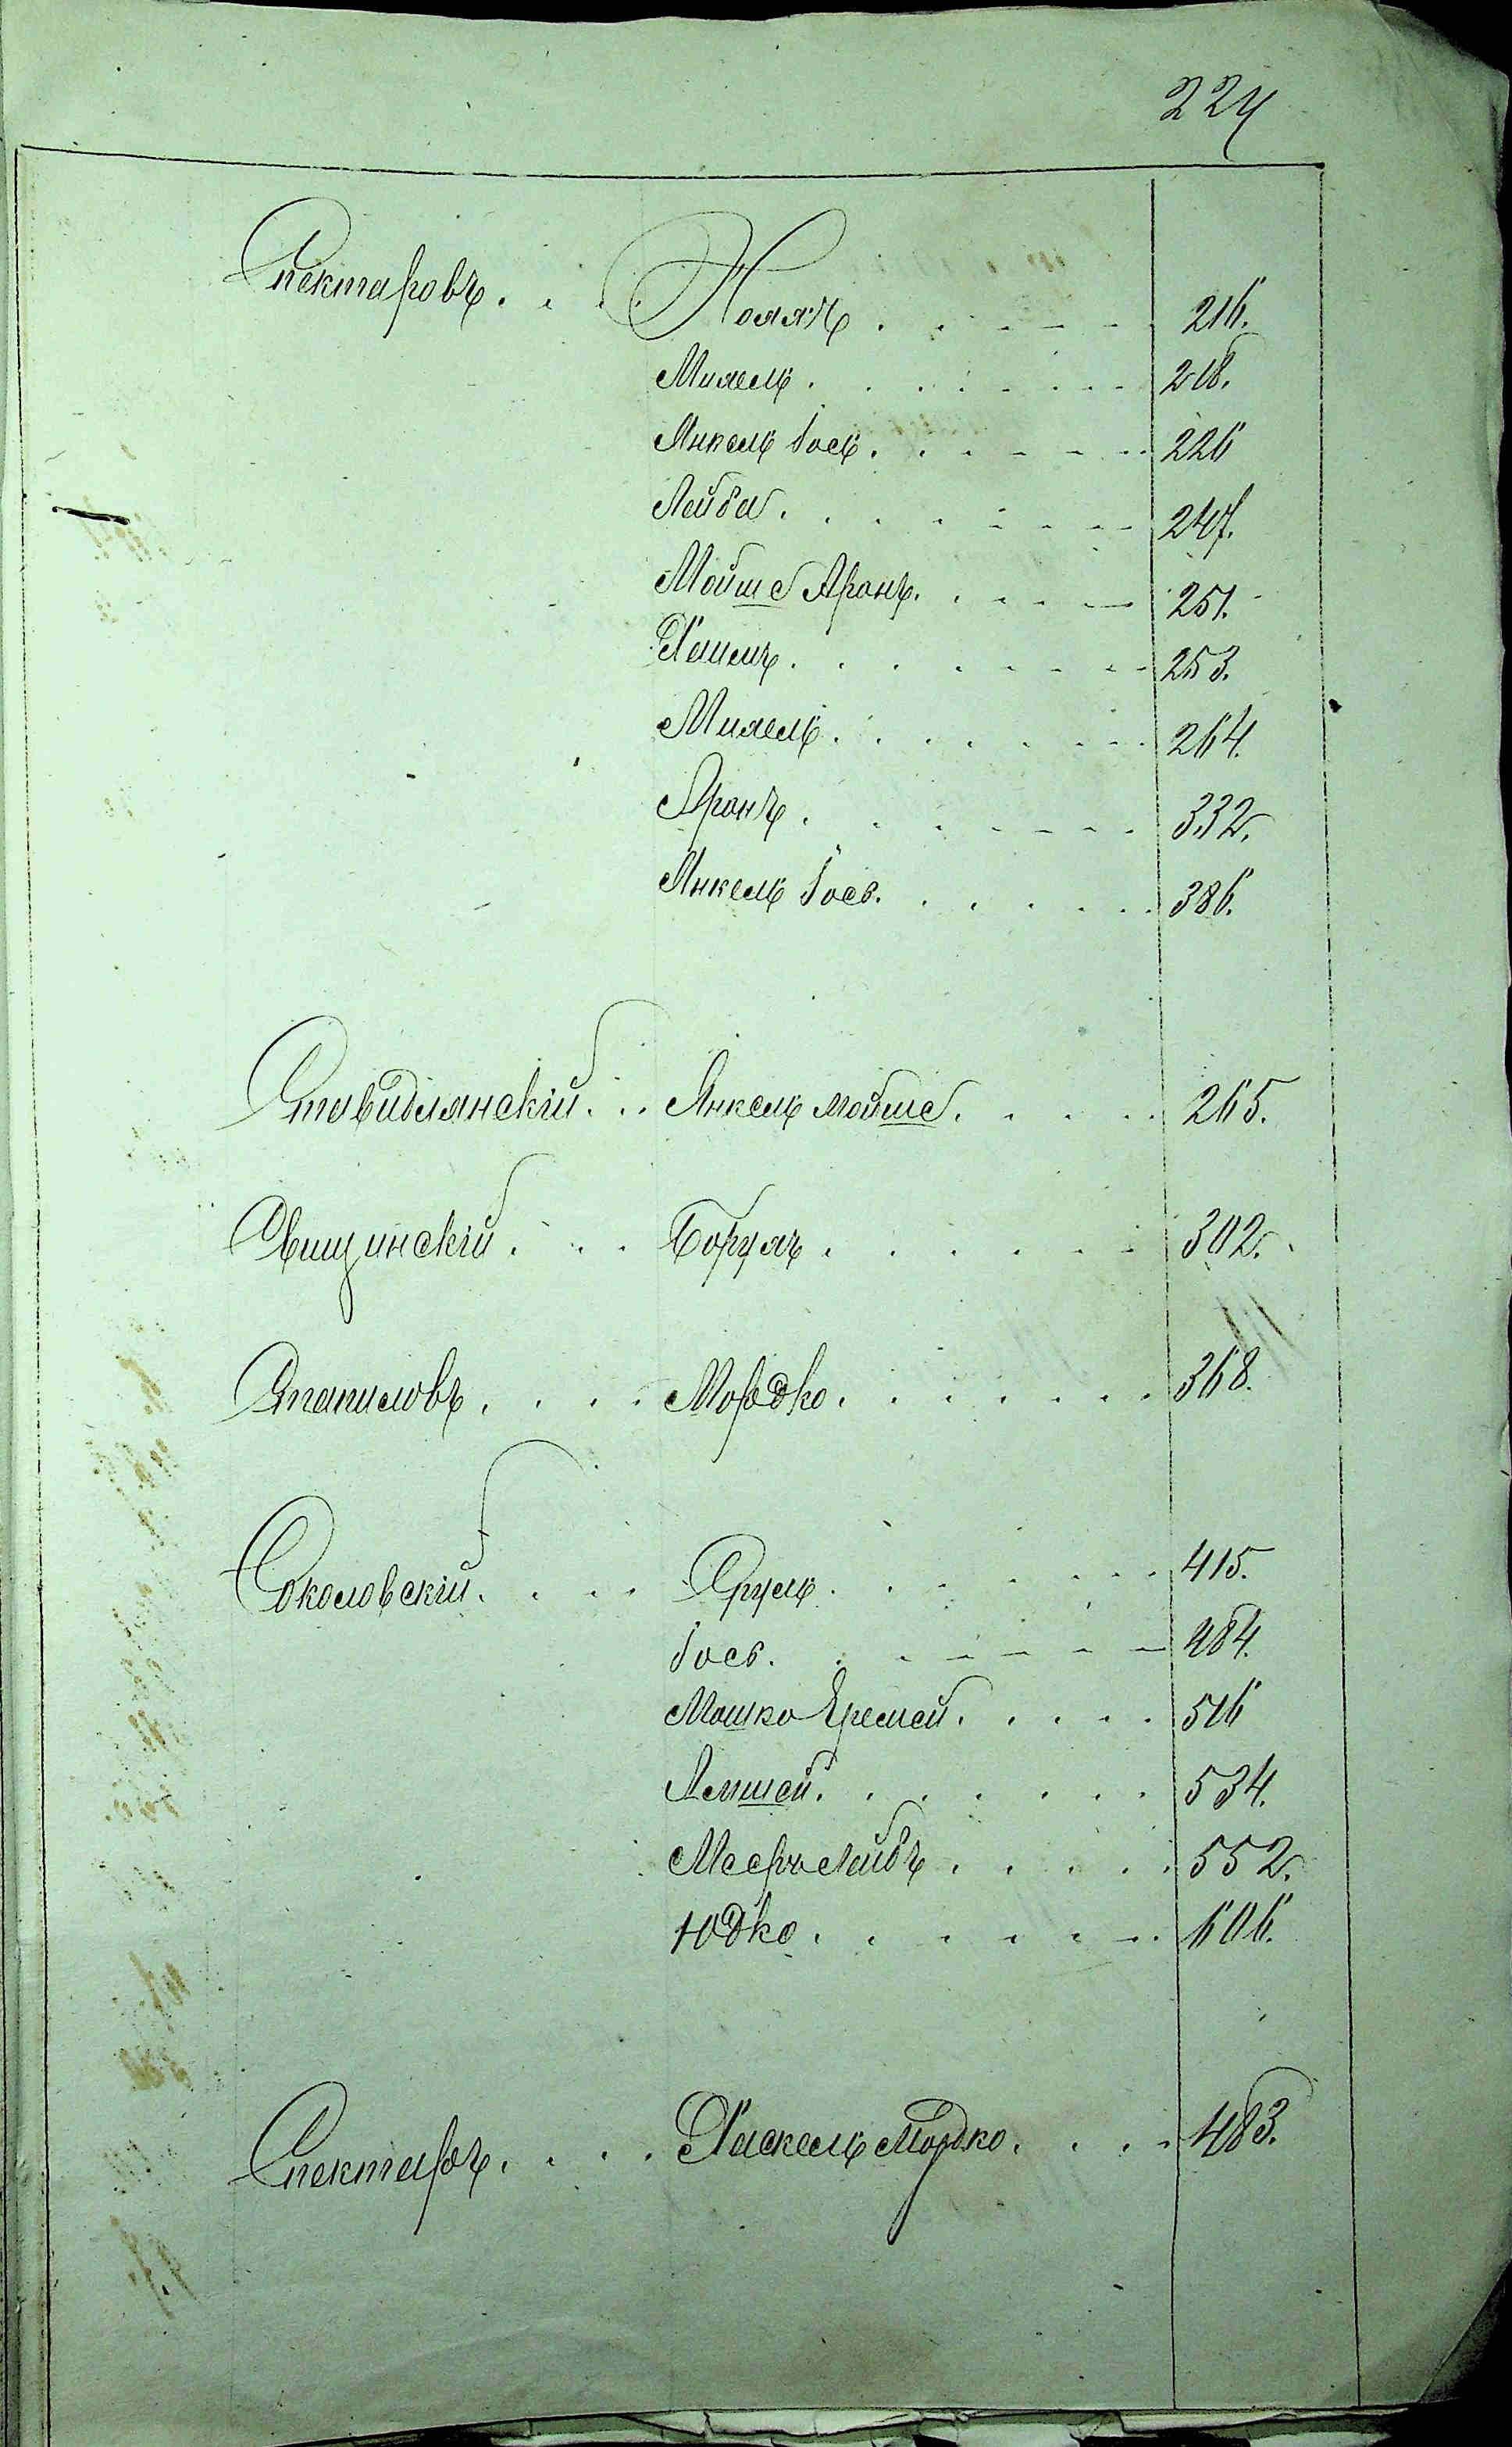 224
Спектаровъ . . . Ноляхъ . . . . . . 216.
Михель . . . . . . . . 218.
Янкель Іось . . . . . . 226
Лейба . . . . . . . . 247.
Мойше Аронъ . . . . . 251.
Хаимъ . . . . . . . . 253.
Михель . . . . . . . . 264.
Аронъ . . . . . . . 332.
Янкель Іось . . . . . . 386.
Ставидлянскій . . . Янкель Мойше . . . . . 265.
Свищинскій . . . Борухъ . . . . . . 302.
Стапиловъ . . . . Мордко . . . . . . . 368.
Соколовскій . . . . Сруль . . . . . . 415.
Іось . . . . . . . 484.
Мошко Еремей . . . . 516
. . . . . . . 534.
Мееръ Лейбъ . . . . . 552.
Юдко . . . . . . . 606.
Спектаръ . . . . Хаскель Мордко . . . . 483.